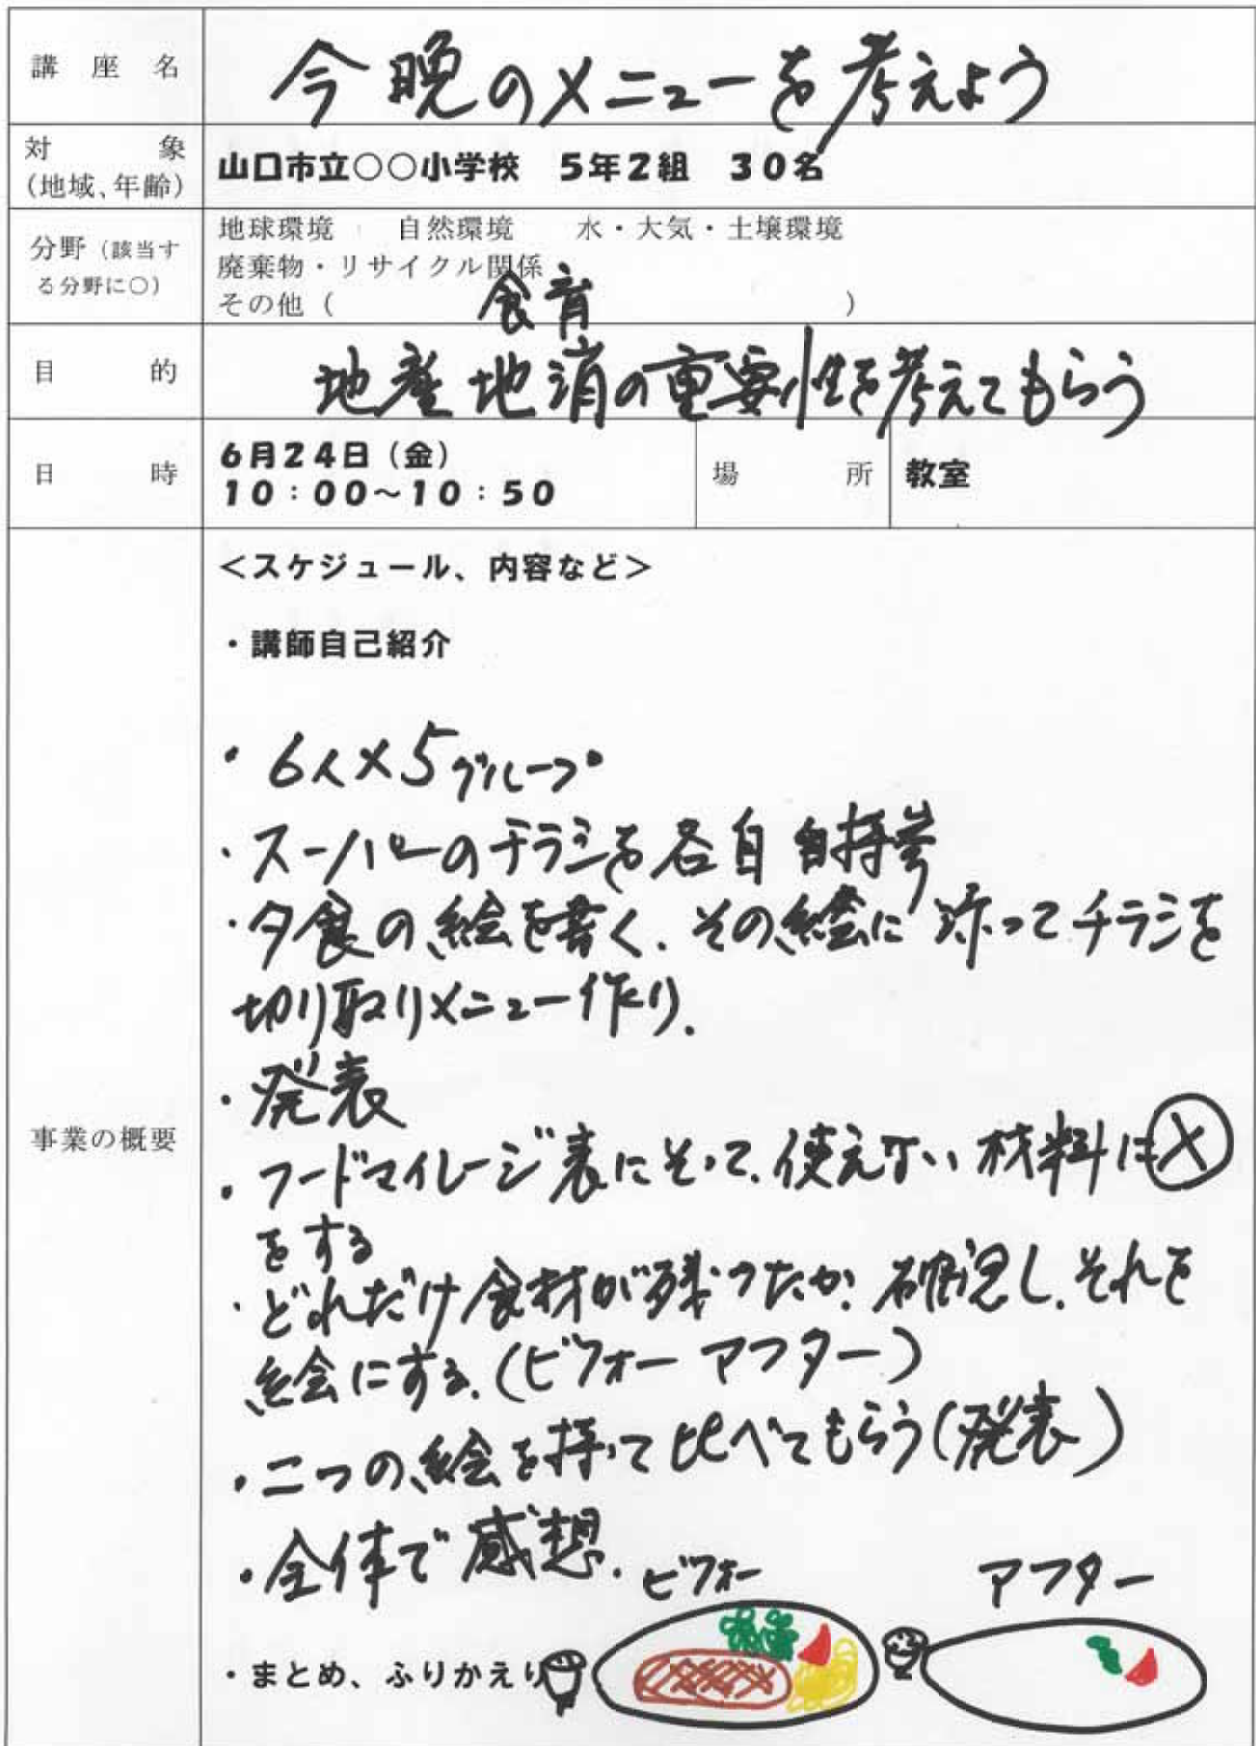 講座名 今晩のメニューを考えよう
対象 (地域、年齢) 山口市立○○小学校 5年2組 30名
分野(該当する分野に○)
地球環境 自然環境 水・大気・土壌環境
廃棄物・リサイクル関係
その他( 食育 )
目的 地産地消の重要性を考えてもらう
日時 6月24日(金)
10:00~10:50
場所 教室
事業の概要
<スケジュール、内容など>
・講師自己紹介
・6人×5グループ
・スーパーのチラシを各自持参
・夕食の絵を書く、その絵に沿ってチラシを
切り取りメニュー作り.
・発表
・フードマイレージ表にそって、使えない材料に×
をする
・どれだけ食材が残ったか、確認し、それを
絵にする.(ビフォーアフター)
・二つの絵を持って比べてもらう(発表)
・全体で感想.
ビフォー アフター
・まとめ、ふりかえり